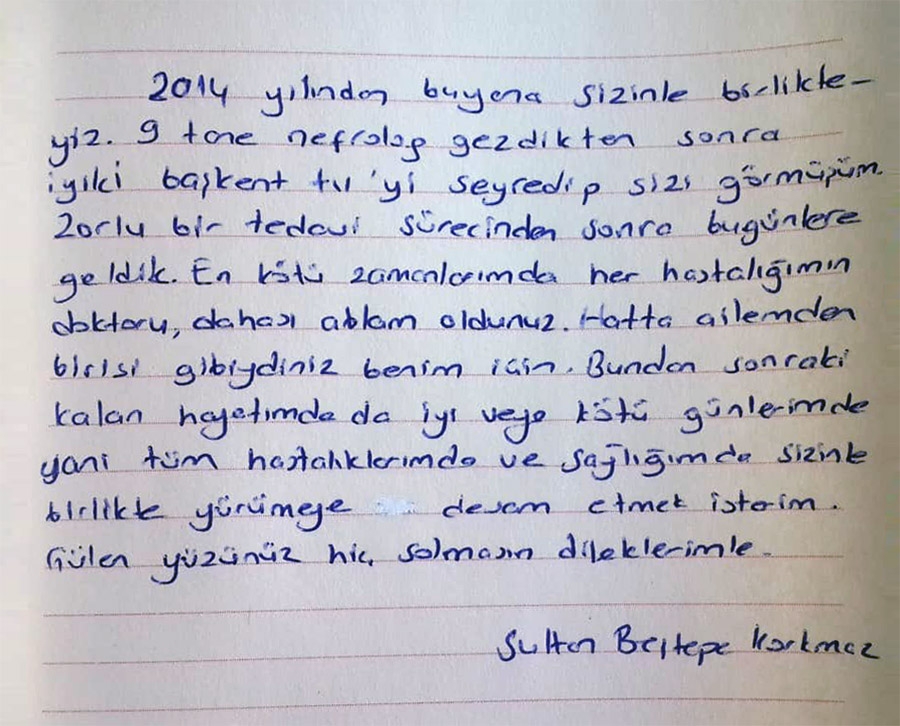 2014 yılından buyana sizinle birlikte-
yiz. 9 tane nefrolog gezdikten sonra
iyiki başkent tv 'yi seyredip sizi görmüşüm.
Zorlu bir tedavi sürecinden sonra bugünlere
geldik. En kötü zamanlarımda her hastalığımın
doktoru, dahası ablam oldunuz. Hatta ailemden
birisi gibiydiniz benim için. Bundan sonraki
kalan hayatımda da iyi veya kötü günlerimde
yani tüm hastalıklarımda ve sağlığımda sizinle
birlikte yürümeye devam etmek isterim.
Gülen yüzünüz hiç solmasın dileklerimle.
Sultan Beştepe Korkmaz